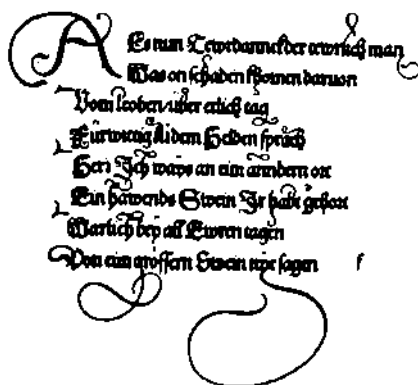 Als nun Tewrdannck der tewrlich man
Was on schaden khomen daruon
Vom leoben uber etlich tag
Fürwittig zu dem Helden sprach
Herr Ich ways an eim anndern ort
Ein hawends Swein Ir habt gehort
Warlich bey all Ewren tagen
Von eim grössern Swein nye sagen